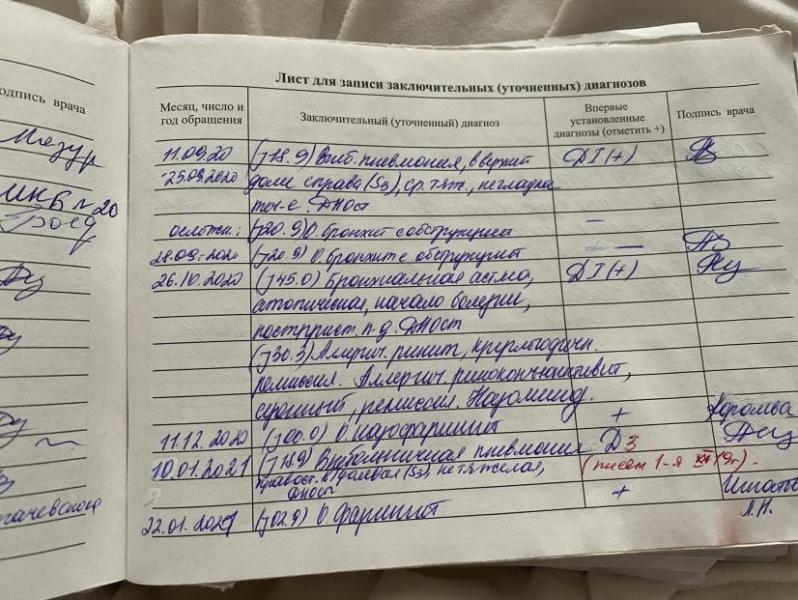 одпись врача
Мазур
ИКБ №20
Лист для записи заключительных (уточненных) диагнозов
Месяц, число и год обращения
Заключительный (уточненный) диагноз
Впервые установленные диагнозы (отметить +)
Подпись врача
11.09.20 (J18.9) Внеб. пневмония, в верхней ДI(+)
-25.09.2020 доли справа (S3), ср. тяж., негладкое
теч-е. ДН0ст
осложн.: (J20.9) О. бронхит с обструкцией —
28.09.2020 (J20.9) О. бронхит с обструкцией + —
26.10.2020 (J45.0) Бронхиальная астма, ДI(+)
атопическая, начало болезни,
постприст. п-д. ДН0ст
(J30.3) Аллергич. ринит, круглогодичн.
ремиссия. Аллергич. риноконъюнктивит,
сезонный, ремиссия.
+
11.12.2020 (J00.0) О. назофарингит Д3
10.01.2021 (J18.9) Внебольничная пневмония (писем 1-я
правост. (S3), нетяжелая,
ДН0ст +
22.01.2021 (J02.9) О. фарингит